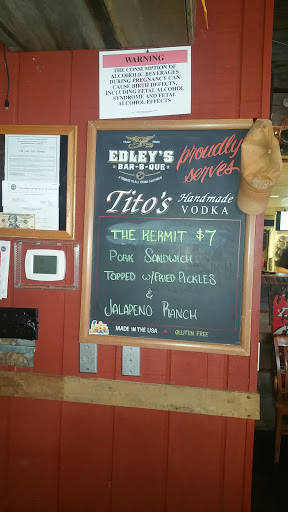 WARNING
THE CONSUMPTION OF
ALCOHOLIC BEVERAGES
DURING PREGNANCY CAN
CAUSE BIRTH DEFECTS,
INCLUDING FETAL ALCOHOL
SYNDROME AND FETAL
ALCOHOL EFFECTS
EDLEY'S
BAR-B-QUE
proudly
serves
Tito's Handmade
VODKA
THE KERMIT $7
PORK SANDWICH
TOPPED W/FRIED PICKLES
&
JALAPENO RANCH
MADE IN THE USA ★ GLUTEN FREE